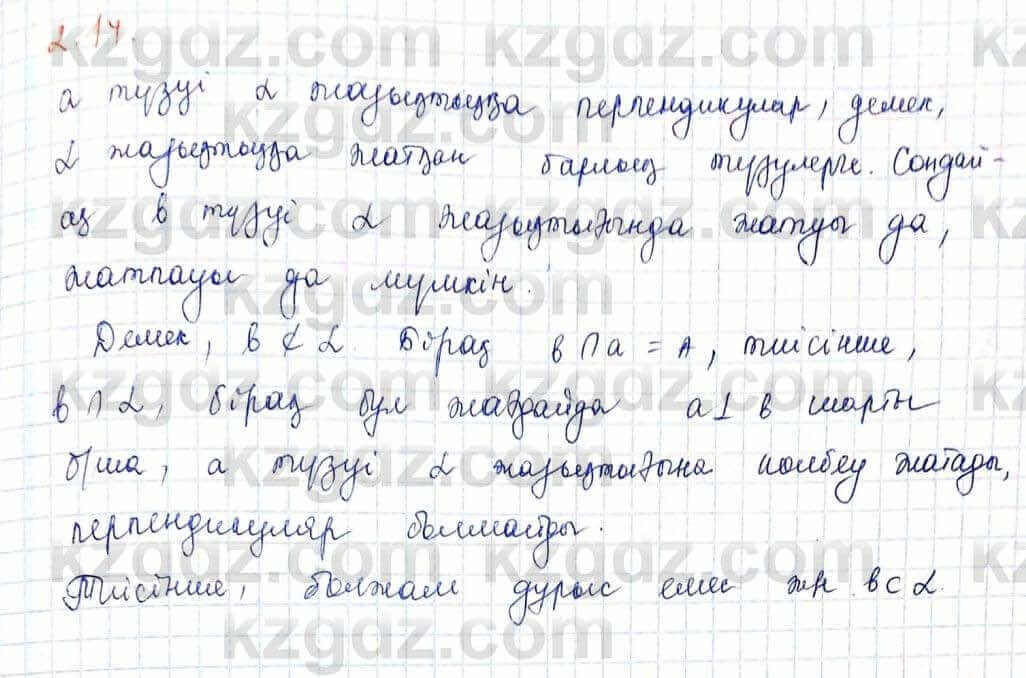 2.14.
а түзуі α жазықтыққа перпендикуляр, демек,
α жазықтыққа жатқан барлық түзулерге. Сондай-
ақ в түзуі α жазықтығында жатуы да,
жатпауы да мүмкін.
Демек, в ⊄ α. Бірақ в ∩ а = А, тиісінше,
в ∩ α, бірақ бұл жағдайда а ⊥ в шарты
б/ша, а түзуі α жазықтығына көлбеу жатады,
перпендикуляр болмайды.
Тиісінше, болжам дұрыс емес жә в ⊂ α.
kzgdz.com